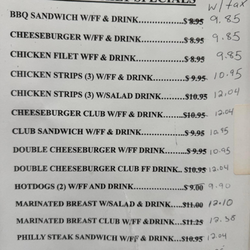 SPECIALS w/ tax
BBQ SANDWICH W/FF & DRINK............$ 8.95 9.85
CHEESEBURGER W/FF & DRINK............$ 8.95 9.85
CHICKEN FILET W/FF & DRINK............$ 8.95 9.85
CHICKEN STRIPS (3) W/FF & DRINK........$ 9.95 10.95
CHICKEN STRIPS (3) W/SALAD DRINK....$10.95 12.04
CHEESEBURGER CLUB W/FF & DRINK....$10.95 12.04
CLUB SANDWICH W/FF & DRINK............$ 9.95 10.95
DOUBLE CHEESEBURGER W/FF DRINK..$ 9.95 10.95
DOUBLE CHEESEBURGER CLUB FF DRINK..$10.95 12.04
HOTDOGS (2) W/FF AND DRINK............$ 9.00 9.90
MARINATED BREAST W/SALAD & DRINK....$11.00 12.10
MARINATED BREAST CLUB W/FF &DRINK....$11.25 12.38
PHILLY STEAK SANDWICH W/FF & DRINK....$10.95 12.04